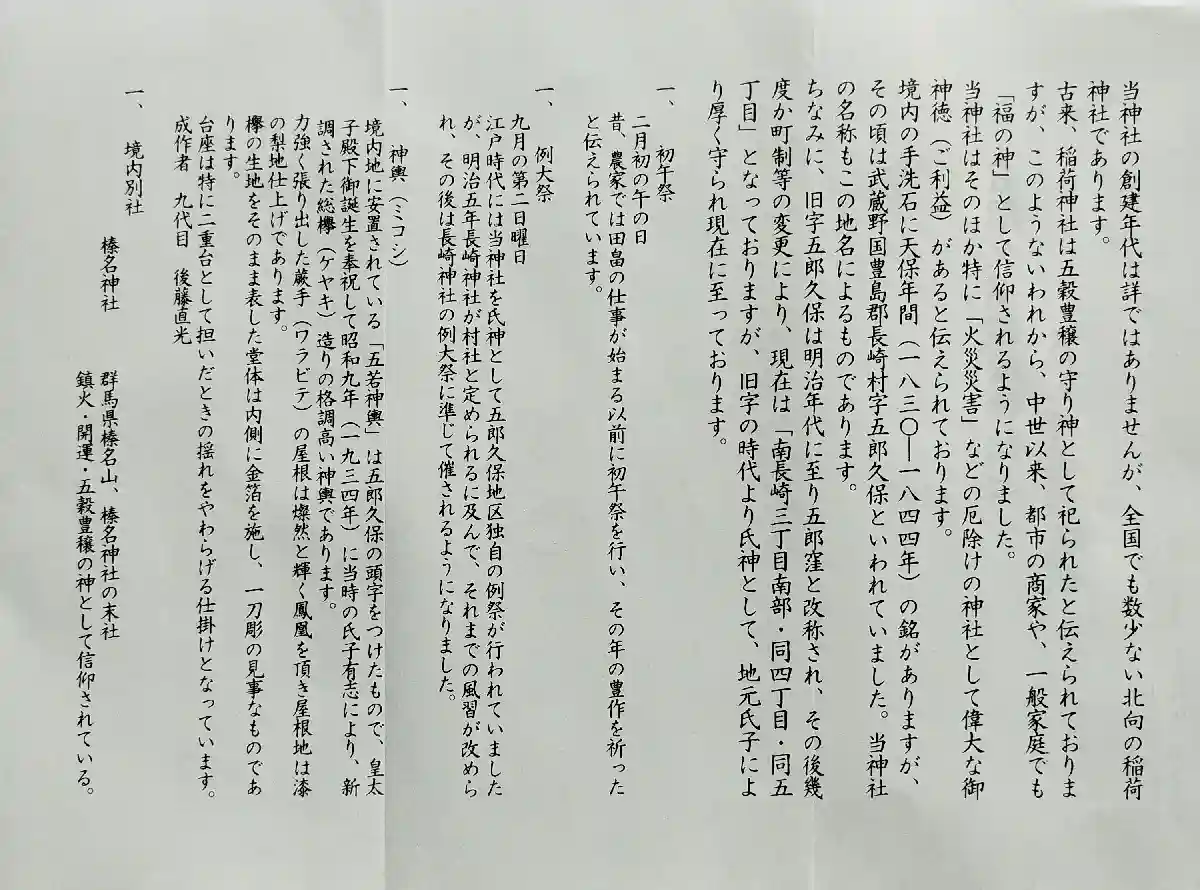 当神社の創建年代は詳ではありませんが、全国でも数少ない北向の稲荷
神社であります。
古来、稲荷神社は五穀豊穣の守り神として祀られたと伝えられておりま
すが、このようないわれから、中世以来、都市の商家や、一般家庭でも
「福の神」として信仰されるようになりました。
当神社はそのほか特に「火災災害」などの厄除けの神社として偉大な御
神徳（ご利益）があると伝えられております。
境内の手洗石に天保年間（一八三〇―一八四四年）の銘がありますが、
その頃は武蔵野国豊島郡長崎村字五郎久保といわれていました。当神社
の名称もこの地名によるものであります。
ちなみに、旧字五郎久保は明治年代に至り五郎窪と改称され、その後幾
度か町制等の変更により、現在は「南長崎三丁目南部・同四丁目・同五
丁目」となっておりますが、旧字の時代より氏神として、地元氏子によ
り厚く守られ現在に至っております。
一、　初午祭
二月初の午の日
昔、農家では田畠の仕事が始まる以前に初午祭を行い、その年の豊作を祈った
と伝えられています。
一、　例大祭
九月の第二日曜日
江戸時代には当神社を氏神として五郎久保地区独自の例祭が行われていました
が、明治五年長崎神社が村社と定められるに及んで、それまでの風習が改めら
れ、その後は長崎神社の例大祭に準じて催されるようになりました。
一、　神輿（ミコシ）
境内地に安置されている「五若神輿」は五郎久保の頭字をつけたもので、皇太
子殿下御誕生を奉祝して昭和九年（一九三四年）に当時の氏子有志により、新
調された総欅（ケヤキ）造りの格調高い神輿であります。
力強く張り出した蕨手（ワラビテ）の屋根は燦然と輝く鳳凰を頂き屋根地は漆
の梨地仕上げであります。
欅の生地をそのまま表した堂体は内側に金箔を施し、一刀彫の見事なものであ
ります。
台座は特に二重台として担いだときの揺れをやわらげる仕掛けとなっています。
成作者　九代目　後藤直光
一、　境内別社
榛名神社　　群馬県榛名山、榛名神社の末社
鎮火・開運・五穀豊穣の神として信仰されている。